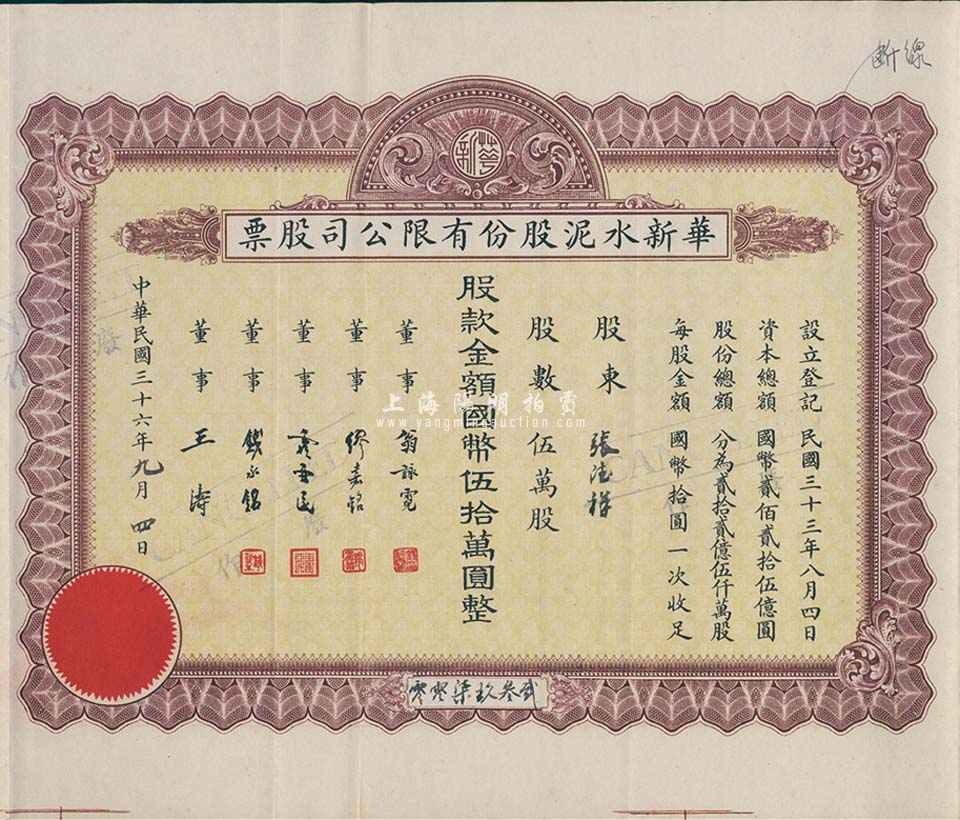 斷線
華新
華新水泥股份有限公司股票
設立登記 民國三十三年八月四日
資本總額 國幣貳佰貳拾伍億圓
股份總額 分為貳拾貳億伍仟萬股
每股金額 國幣拾圓一次收足
股東 張德祥
股數 伍萬股
股款金額國幣伍拾萬圓整
董事 翁詠霓
董事
董事
董事 錢永銘
董事 王濤
中華民國三十六年九月四日
貳叁玖柒零零
CANCELLED
作廢
CANCELLED
作廢
上海陽明拍賣
www.yangmingauction.com